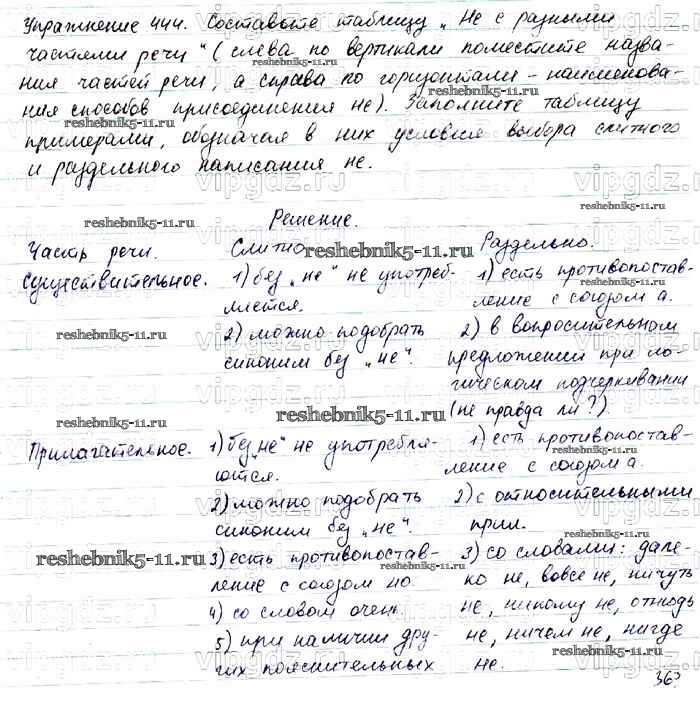 Упражнение 444. Составьте таблицу „Не с разными
частями речи" (слева по вертикали поместите назва-
ния частей речи, а справа по горизонтали - наименова-
ния способов присоединения не). Заполните таблицу
примерами, обозначая в них условия выбора слитного
и раздельного написания не.
Решение.
Часть речи. Слитно Раздельно.
Существительное. 1) без „не" не употреб- 1) есть противопостав-
ляется. ление с союзом а.
2) можно подобрать 2) в вопросительном
синоним без „не". предложении при ло-
гическом подчеркивании
(не правда ли?).
Прилагательное. 1) без „не" не употребля- 1) есть противопостав-
ются. ление с союзом а.
2) можно подобрать 2) с относительными
синоним без „не". прил.
3) есть противопостав- 3) со словами: дале-
ление с союзом но. ко не, вовсе не, ничуть
4) со словом очень не, никому не, отнюдь
5) при наличии дру- не, ничем не, нигде
гих пояснительных не.
363
reshebnik5-11.ru
vipgdz.ru